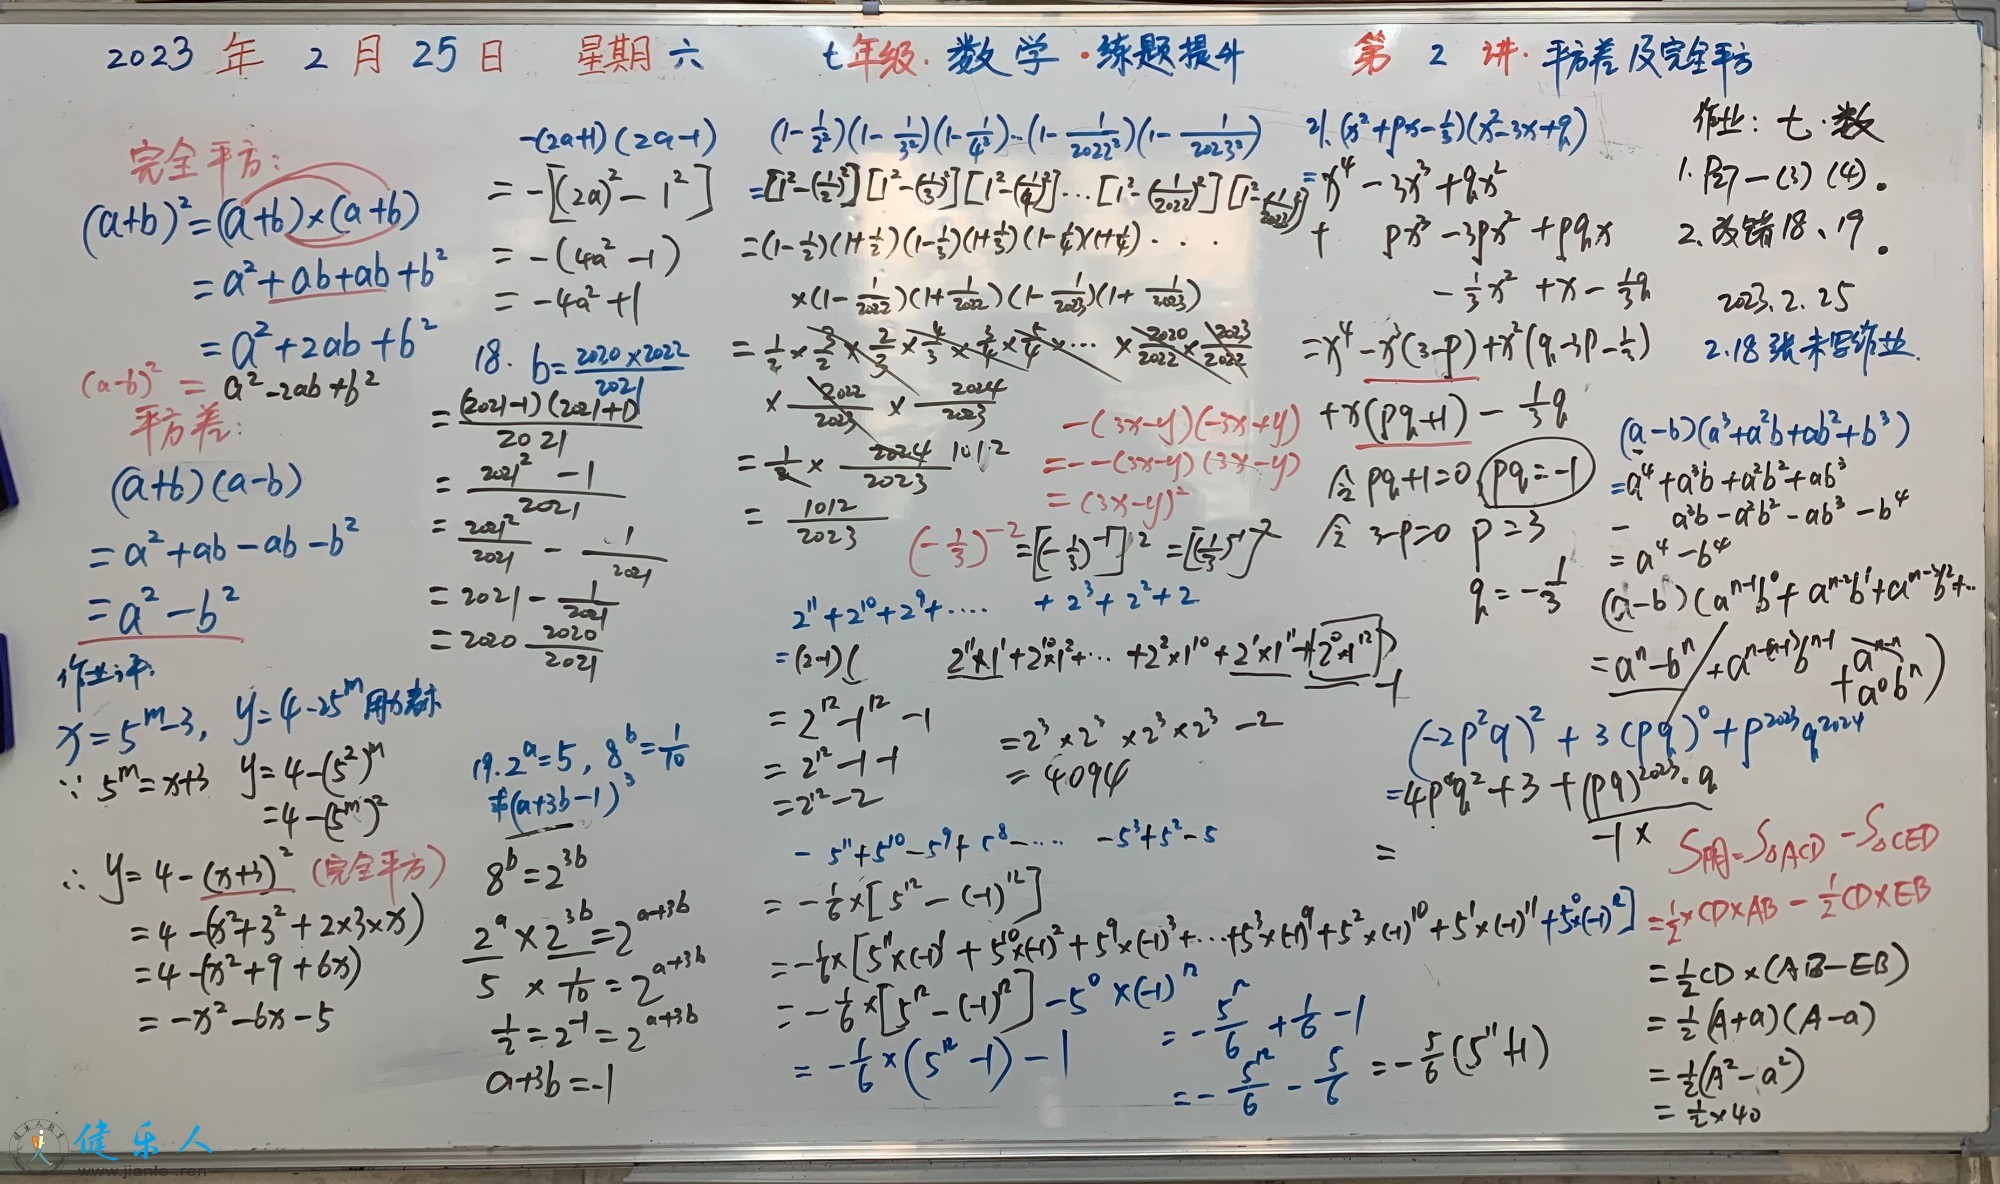 2023 年 2 月 25 日 星期六 七年级·数学·练题提升 第 2 讲·平方差及完全平方
完全平方:
(a+b)²=(a+b)×(a+b)
=a²+ab+ab+b²
=a²+2ab+b²
(a-b)² = a²-2ab+b²
平方差:
(a+b)(a-b)
=a²+ab-ab-b²
=a²-b²
作业评:
x=5^m-3, y=4-25^m 用x表示
∵ 5^m=x+3 y=4-(5²)^m
=4-(5^m)²
∴ y=4-(x+3)² (完全平方)
=4-(x²+3²+2×3×x)
=4-(x²+9+6x)
=-x²-6x-5
-(2a+1)(2a-1)
=-[(2a)²-1²]
=-(4a²-1)
=-4a²+1
18. b=2020×2022/2021
=(2021-1)(2021+1)/2021
=2021²-1/2021
=2021²/2021 - 1/2021
=2021-1/2021
=2020 2020/2021
19. 2^a=5, 8^b=1/10
求(a+3b-1)³
8^b=2^3b
2^a×2^3b=2^a+3b
5 × 1/10=2^a+3b
1/2=2^-1=2^a+3b
a+3b=-1
(1-1/2²)(1-1/3²)(1-1/4²)…(1-1/2022²)(1-1/2023²)
=[1²-(1/2)²][1²-(1/3)²][1²-(1/4)²]…[1²-(1/2022)²][1²-(1/2022)²]
=(1-1/2)(1+1/2)(1-1/3)(1+1/3)(1-1/4)(1+1/4)····
×(1-1/2022)(1+1/2022)(1-1/2023)(1+1/2023)
=1/2×3/2×2/3×4/3×3/4×5/4×…×2020/2022×2023/2022
×2022/2023×2024/2023
=1/2×2024/2023 1012
=1012/2023
-(3x-y)(-3x+y)
=--(3x-y)(3x-y)
=(3x-y)²
(-1/3)^-2=[(-1/3)^-1]²=
2^11+2^10+2^9+···· +2³+2²+2
=(2-1)( 2^11×1^1+2^10×1²+…+2²×1^10+2^1×1^11+2^0×1^12)-1
=2^12-1^12-1
=2^12-1-1
=2^12-2
=2³×2³×2³×2³-2
=4094
-5^11+5^10-5^9+5^8-···· -5³+5²-5
=-1/6×[5^12-(-1)^12]
=-1/6×[5^11×(-1)^1+5^10×(-1)²+5^9×(-1)³+…+5³×(-1)^9+5²×(-1)^10+5^1×(-1)^11+5^0×(-1)^12]
=-1/6×[5^12-(-1)^12]-5^0×(-1)^12
=-1/6×(5^12-1)-1
=-5^12/6+1/6-1
=-5^12/6-5/6=-5/6(5^11+1)
21. (x²+px-1/3)(x²-3x+q)
=x⁴-3x³+qx²
+ px³-3px²+pqx
-1/3x²+x-1/3q
=x⁴-x³(3-p)+x²(q-3p-1/3)
+x(pq+1)-1/3q
令pq+1=0, pq=-1
令3-p=0 p=3
q=-1/3
作业: 七·数
1. P27-(3)(4)。
2. 改错18、19。
2023.2.25
2.18 张未写作业.
(a-b)(a³+a²b+ab²+b³)
=a⁴+a³b+a²b²+ab³
- a³b-a²b²-ab³-b⁴
=a⁴-b⁴
(a-b)(a^n-1b^0+a^n-2b^1+a^n-3b²+…
=a^n-b^n +a^n-(n-1)b^n-1+a^n-n
+a^0b^n)
(-2p²q)²+3(pq)^0+p^2023q^2024
=4p⁴q²+3+(pq)^2023·q
-1×
=
S阴=S△ACD-S△CED
=1/2×CD×AB-1/2CD×EB
=1/2CD×(AB-EB)
=1/2(A+a)(A-a)
=1/2(A²-a²)
=1/2×40
健乐人
www.jianle.ren